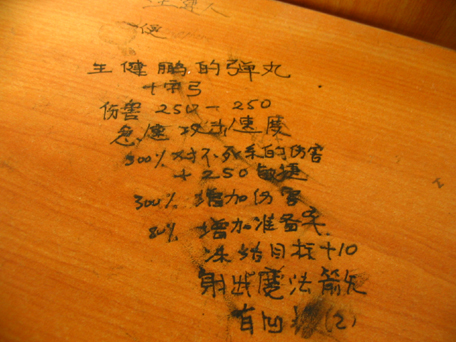 王健鹏的弹丸
十字弓
伤害250-250
急速攻击速度
300%对不死系的伤害
+250敏捷
300%增加伤害
80%增加准备率
冻结目标+10
射出魔法箭矢
有凹槽(2)